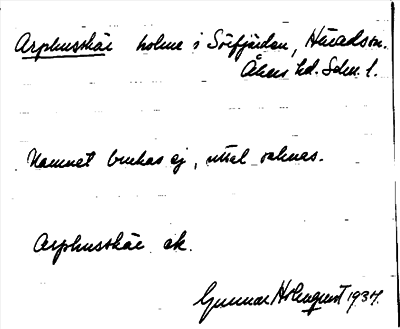 Arphusskär holme i Sörfjärden, Häradssn.
Åkers hd. Sdm. l.
Namnet brukas ej, uttal saknas.
Arphusskär ek.
Gunnar Holmquist 1934.